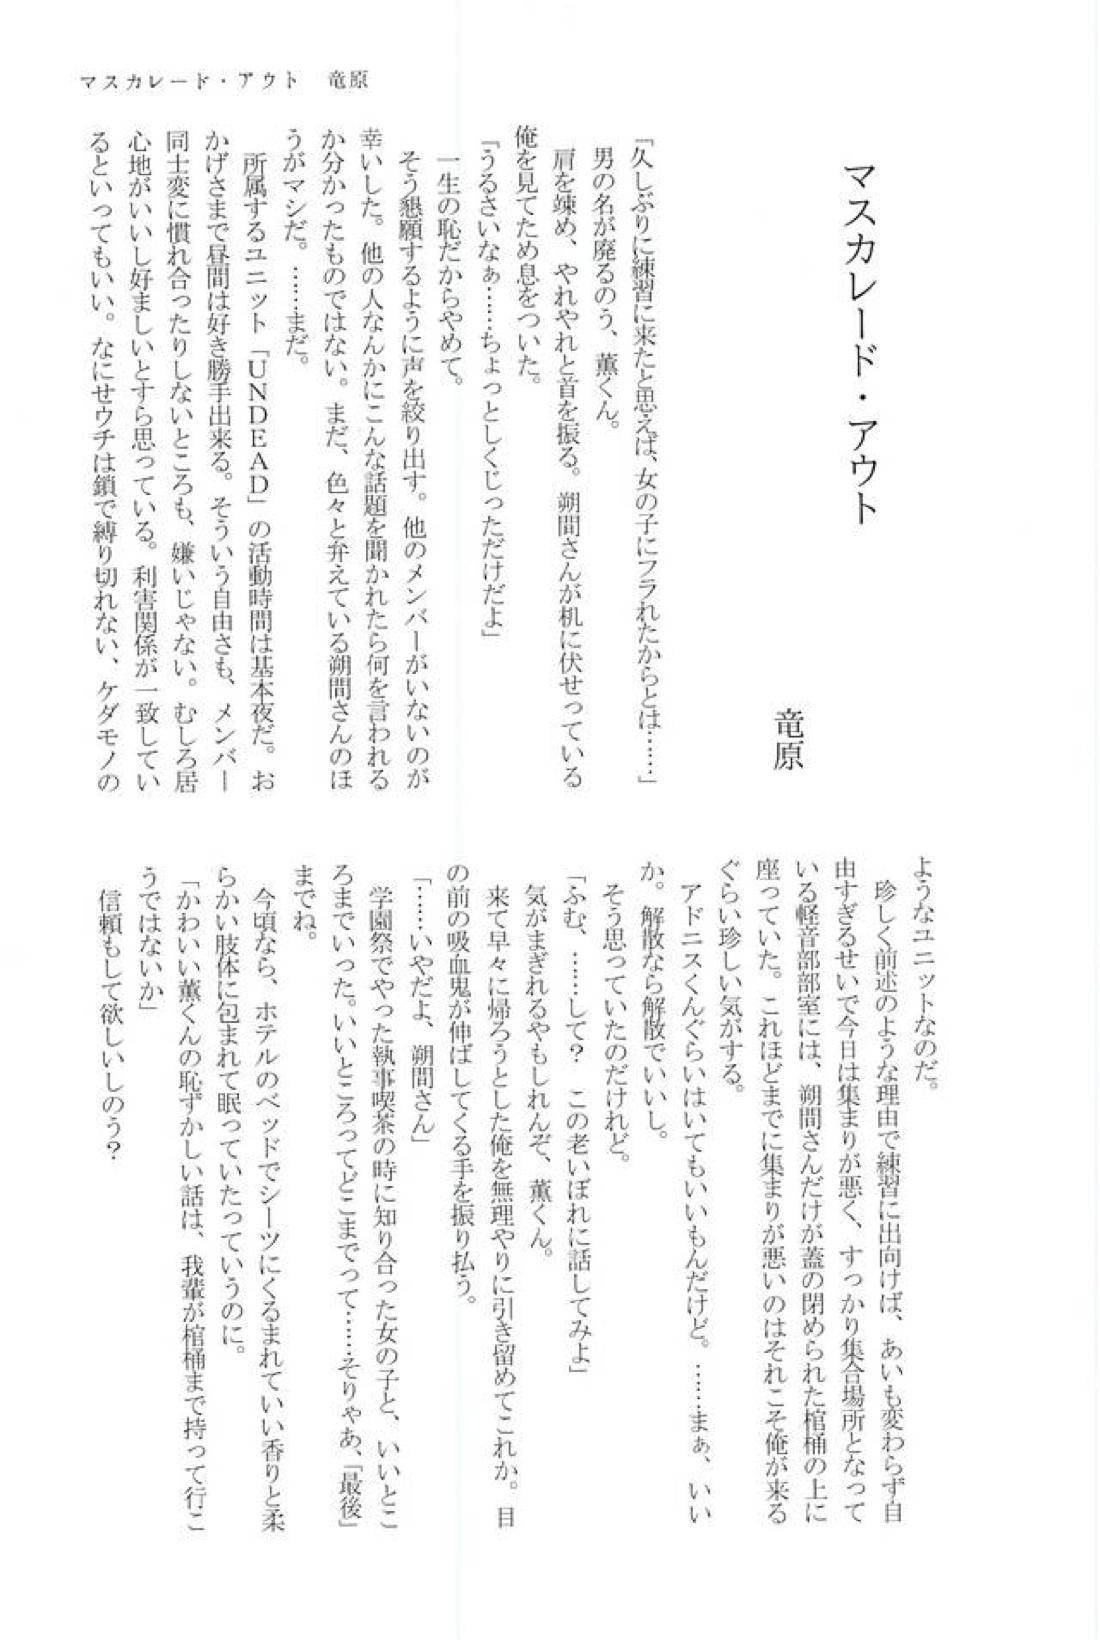 マスカレード・アウト　竜原
マスカレード・アウト
竜原
「久しぶりに練習に来たと思えば、女の子にフラれたからとは……」
男の名が廃るのう、薫くん。
肩を竦め、やれやれと首を振る。朔間さんが机に伏せっている
俺を見てため息をついた。
「うるさいなぁ……ちょっとしくじっただけだよ」
一生の恥だからやめて。
そう懇願するように声を絞り出す。他のメンバーがいないのが
幸いした。他の人なんかにこんな話題を聞かれたら何を言われる
か分かったものではない。まだ、色々と弁えている朔間さんのほ
うがマシだ。……まだ。
所属するユニット「ＵＮＤＥＡＤ」の活動時間は基本夜だ。お
かげさまで昼間は好き勝手出来る。そういう自由さも、メンバー
同士変に慣れ合ったりしないところも、嫌いじゃない。むしろ居
心地がいいし好ましいとすら思っている。利害関係が一致してい
るといってもいい。なにせウチは鎖で縛り切れない、ケダモノの
ようなユニットなのだ。
珍しく前述のような理由で練習に出向けば、あいも変わらず自
由すぎるせいで今日は集まりが悪く、すっかり集合場所となって
いる軽音部部室には、朔間さんだけが蓋の閉められた棺桶の上に
座っていた。これほどまでに集まりが悪いのはそれこそ俺が来る
ぐらい珍しい気がする。
アドニスくんぐらいはいてもいいもんだけど。……まぁ、いい
か。解散なら解散でいいし。
そう思っていたのだけれど。
「ふむ、……して？　この老いぼれに話してみよ」
気がまぎれるやもしれんぞ、薫くん。
来て早々に帰ろうとした俺を無理やりに引き留めてこれか。目
の前の吸血鬼が伸ばしてくる手を振り払う。
「……いやだよ、朔間さん」
学園祭でやった執事喫茶の時に知り合った女の子と、いいとこ
ろまでいった。いいところってどこまでって……そりゃあ、「最後」
までね。
今頃なら、ホテルのベッドでシーツにくるまれていい香りと柔
らかい肢体に包まれて眠っていたっていうのに。
「かわいい薫くんの恥ずかしい話は、我輩が棺桶まで持って行こ
うではないか」
信頼もして欲しいしのう？